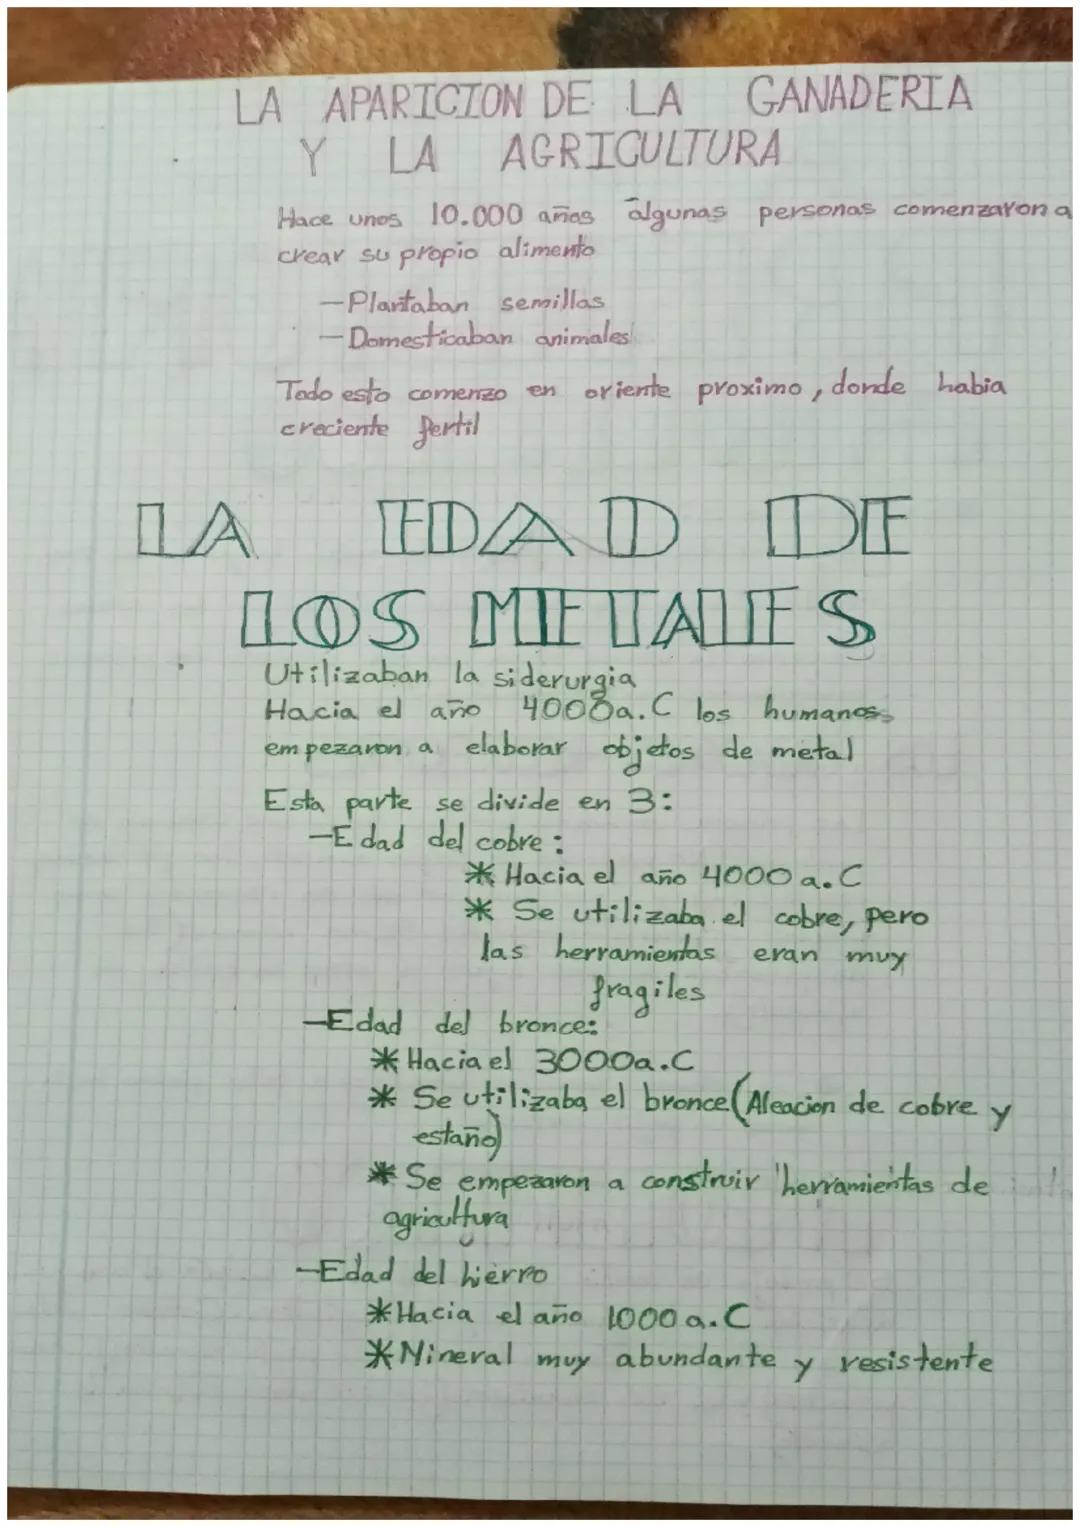 LA APARICION DE LA GANADERIA
Y LA AGRICULTURA
Hace unos 10.000 años algunas personas comenzaron a
crear su propio alimento
-Plantaban semillas
-Domesticaban animales
Todo esto comenzo en oriente proximo, donde habia
creciente fertil
LA EDAD DE
LOS METALES
Utilizaban la siderurgia
Hacia el año 4000a.C los humanos
empezaron a elaborar objetos de metal
Esta parte se divide en 3:
-Edad del cobre:
* Hacia el año 4000 a.C
* Se utilizaba el cobre, pero
las herramientas eran muy
fragiles
-Edad del bronce:
* Hacia el 3000a.C
* Se utilizaba el bronce (Aleacion de cobre y
estaño)
* Se empezaron a construir herramientas de
agricultura
-Edad del hierro
* Hacia el año 1000 a.C
* Mineral muy abundante y resistente